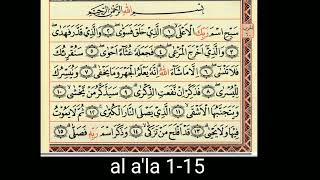 بِسْمِ اللَّهِ الرَّحْمَٰنِ الرَّحِيمِ
سَبِّحِ اسْمَ رَبِّكَ الْأَعْلَى ١ الَّذِي خَلَقَ فَسَوَّىٰ ٢ وَالَّذِي قَدَّرَ فَهَدَىٰ ٣
وَالَّذِي أَخْرَجَ الْمَرْعَىٰ ٤ فَجَعَلَهُ غُثَاءً أَحْوَىٰ ٥ سَنُقْرِئُكَ
فَلَا تَنسَىٰ ٦ إِلَّا مَا شَاءَ اللَّهُ إِنَّهُ يَعْلَمُ الْجَهْرَ وَمَا يَخْفَىٰ ٧ وَنُيَسِّرُكَ
لِلْيُسْرَىٰ ٨ فَذَكِّرْ إِن نَّفَعَتِ الذِّكْرَىٰ ٩ سَيَذَّكَّرُ مَن يَخْشَىٰ ١٠
وَيَتَجَنَّبُهَا الْأَشْقَى ١١ الَّذِي يَصْلَى النَّارَ الْكُبْرَىٰ ١٢ ثُمَّ لَا يَمُوتُ
فِيهَا وَلَا يَحْيَىٰ ١٣ قَدْ أَفْلَحَ مَن تَزَكَّىٰ ١٤ وَذَكَرَ اسْمَ رَبِّهِ فَصَلَّىٰ ١٥
al a'la 1-15